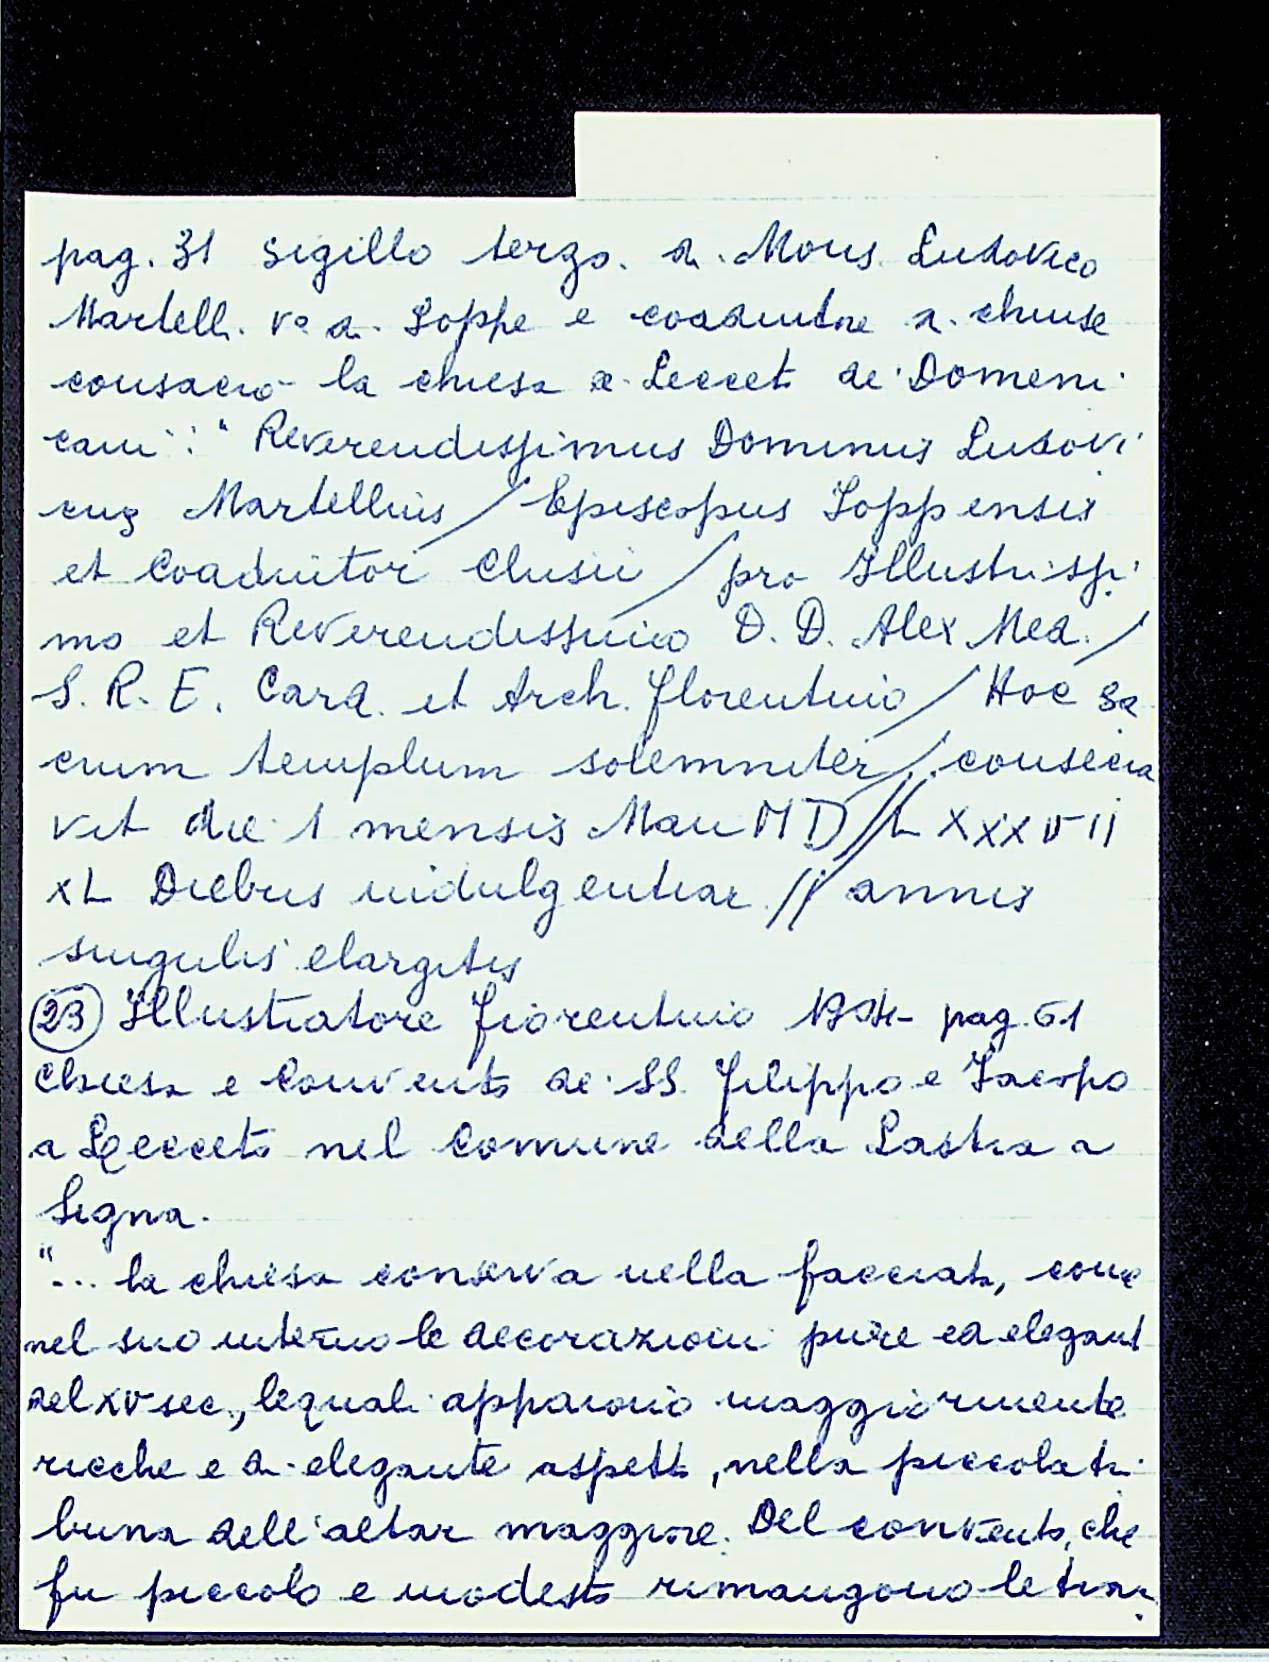 pag. 31 sigillo terzo. di Mons. Ludovico
Martelli. Vo di Joppe e coadiutore di Chiuse
consacrò la chiesa di Lecceto de' Domeni
cani: "Reverendissimus Dominus Ludovi
cus Martellius / Episcopus Joppensis
et Coadiutor Clusii / pro Illustrissi
mo et Reverendissimo D. D. Alex Med. /
S. R. E. Card. et Arch. florentino / Hoc sa
crum templum solemniter / consecra
vit die 1 mensis Maii MD // LXXXVII
XL Diebus indulgentiar // annis
singulis elargitis
(23) Illustratore fiorentino pag. 51
Chiesa e Convento de' SS. Filippo e Jacopo
a Lecceto nel Comune della Lastra a
Signa.
"... la chiesa conserva nella facciata, come
nel suo interno le decorazioni pure ed eleganti
del XV sec., le quali appaiono maggiormente
ricche e di elegante aspetto, nella piccola tri
buna dell'altar maggiore. Del convento, che
fu piccolo e modesto rimangono le trac